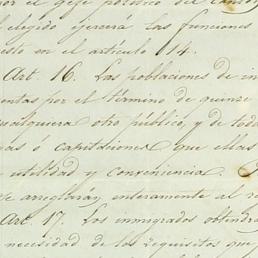 por el gefe político del canton
elegido ejercerá las funciones
esto en el artículo 14.
Art. 16. Las poblaciones de in
entas por el término de quince
ualquiera otro público, y de tod
as ó capitaciones que ellas
utilidad y conveniencia.
te arreglarán enteramente al re
Art. 17. Los inmigrados obtendrá
necesidad de los requisitos que